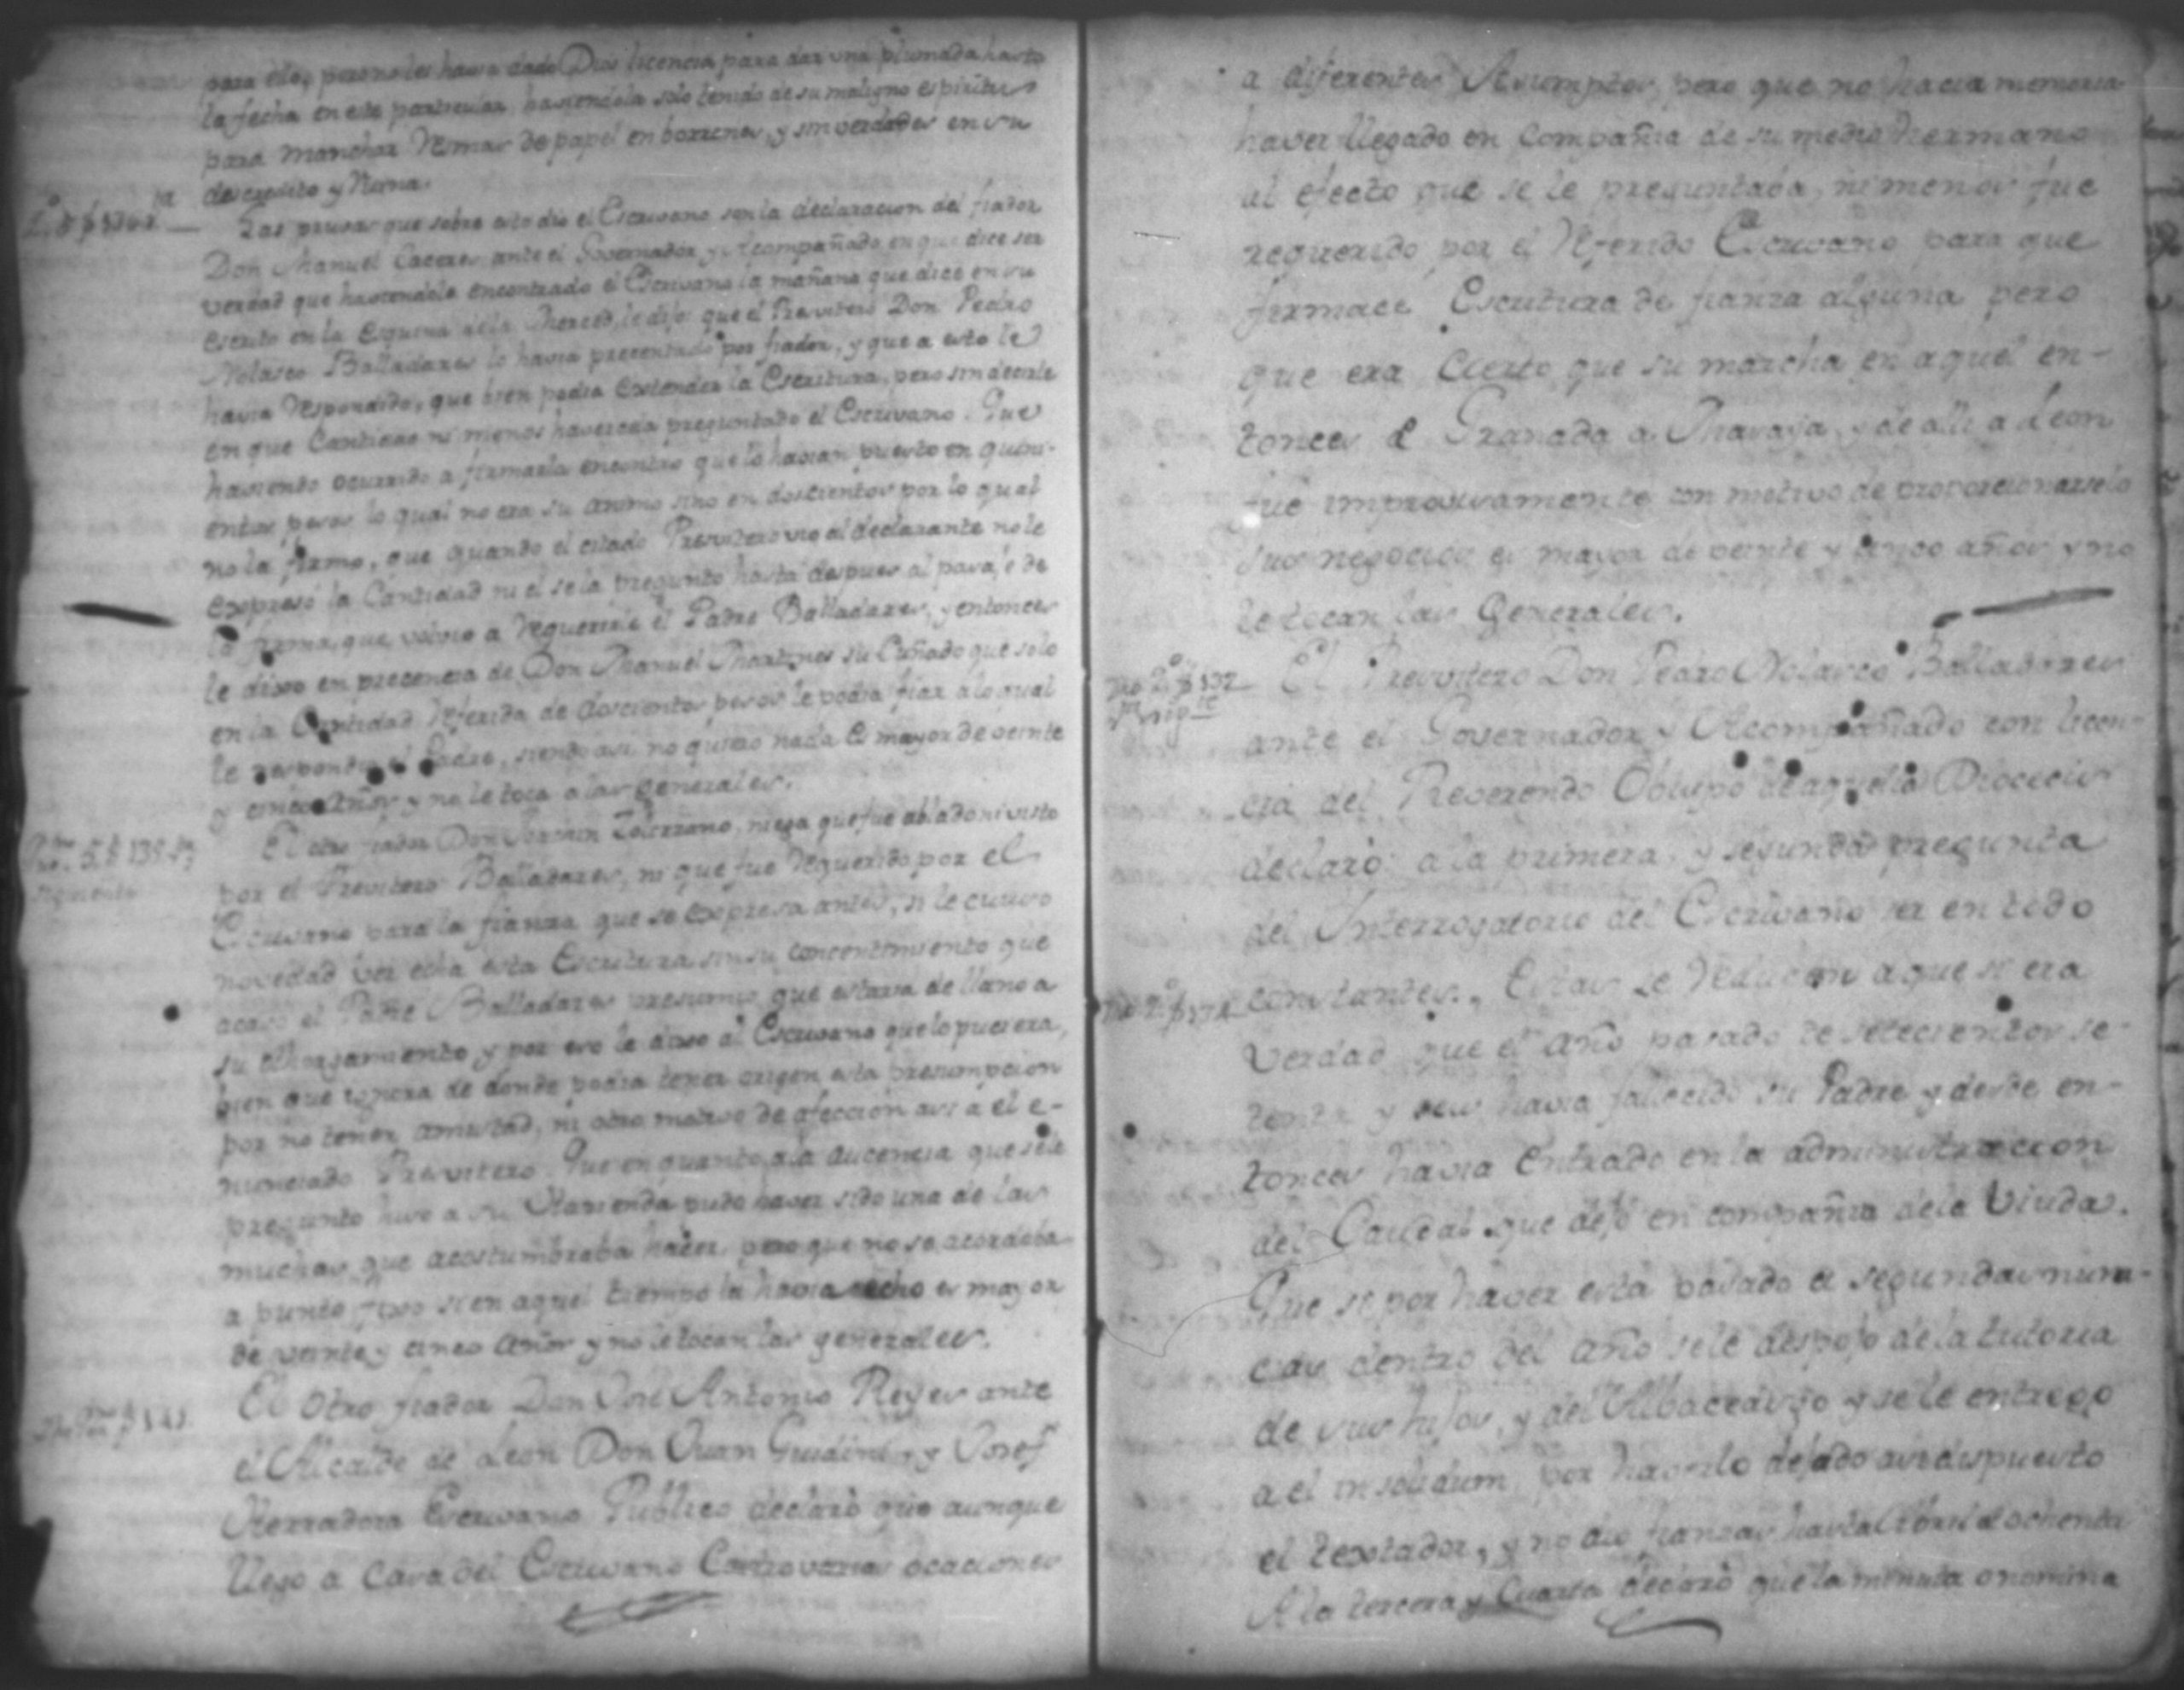 para ello, pero no les havia dado Dios licencia para dar una plumada hasta
la fecha en este particular, haviendola solo tenido de su maligno espiritu
para manchar Resmas de papel en borrones, y sin verdades en su
descredito y Ruina.
Las pruebas que sobre esto dio el Escrivano son la declaracion del fiador
Don Manuel Caceres ante el Governador y Acompañado, en que dice ser
verdad que haviendole encontrado el Escrivano la mañana que dice en su
escrito en la esquina de la Merced, le dijo: que el Presvitero Don Pedro
Nolasco Balladares lo havia presentado por fiador, y que a esto le
havia Respondido, que bien podia extender la Escritura, pero sin decirle
en que Cantidad ni menos haversela preguntado el Escrivano. Que
haviendo ocurrido a firmarla encontro que lo havian puesto en quini-
entos pesos lo qual no era su animo sino en doscientos por lo qual
no la firmo, que quando el citado Presvitero vio al declarante no le
expresó la Cantidad ni el se la pregunto hasta despues al paraje de
la firma, que volvio a Requerirle el Padre Balladares, y entonces
le dixo en precencia de Don Manuel Martines su Cuñado que solo
en la Cantidad Referida de doscientos pesos le podia fiar a lo qual
le respondio el Padre, siendo asi no quiero nada Es mayor de veinte
y cinco Años y no le toca a las generales.
El otro fiador Don Joaquin Solorzano, niega que fue ablado ni visto
por el Presvitero Balladares, ni que fue Requerido por el
Escrivano para la fianza que se expresa antes, si le causo
novedad ver echa esta Escritura sin su concentimiento que
acaso el Padre Balladares presumio que estava de llano a
su othorgamiento y por eso le dixo al Escrivano que lo pusiera,
bien que ignora de donde podia tener origen esta presumpcion
por no tener amistad, ni otro motivo de afeccion asi a el e-
nunciado Presvitero. Que en quanto a la aucencia que se le
pregunto hiso a su Hacienda pudo haver sido una de las
muchas que acostumbraba hacer, pero que no se acordaba
a punto fixo si en aquel tiempo la havia hecho es mayor
de veinte y cinco Años y no le tocan las generales.
El Otro fiador Don José Antonio Reyes ante
el Alcalde de Leon Don Juan y Josef
Herradora Escrivano Publico declaró que aunque
llego a casa del Escrivano Castro varias ocaciones
a diferentes Asumptos, pero que no hacia memoria
haver llegado en Compañia de su medio hermano
al efecto que se le preguntaba, ni menos fue
requerido por el Referido Escrivano para que
firmace Escritura de fianza alguna pero
que era Cierto que su marcha en aquel en-
tonces de Granada a Masaya, y de alli a Leon
fue improvisamente con motivo de proporcionarsele
sus negocios es mayor de veinte y cinco años y no
le tocan las Generales.
El Presvitero Don Pedro Nolasco Balladares
ante el Governador y Acompañado con licen-
cia del Reverendo Obispo de aquella Diocecis
declaró: a la primera, y segunda pregunta
del Interrogatorio del Escrivano ser en todo
constantes. Estas se Reducen a que si era
Verdad que el Año pasado de setecientos se-
tenta y seis havia fallecido su Padre y desde en-
tonces havia Entrado en la administracion
del Caudal que dejó en compañia de la Viuda.
Que si por haver esta pasado a segundas nup-
cias dentro del año se le despojo de la tutoria
de sus hijos, y del Albaceazgo y se le entrego
a el insolidum, por haverlo dejado asi dispuesto
el testador, y no dio fianzas hasta Abril de ochenta
A la tercera y Cuarta declaró que la minuta o nomina